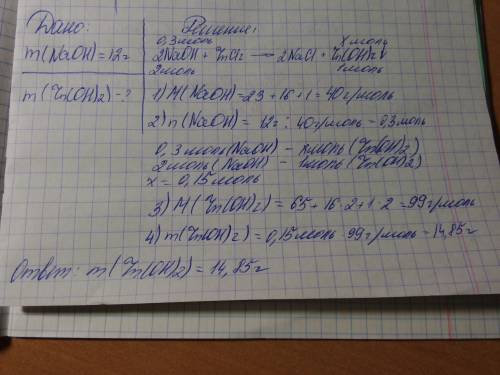 Дано:
m(NaOH)=12г
m(Zn(OH)2)-?
Решение:
0,3моль хмоль
2NaOH + ZnCl2 → 2NaCl + Zn(OH)2↓
2моль 1моль
1) M(NaOH)=23+16+1=40г/моль
2) n(NaOH) = 12г : 40г/моль = 0,3моль
0,3 моль(NaOH) - хмоль (Zn(OH)2)
2моль (NaOH) - 1моль (Zn(OH)2)
х = 0,15моль
3) M(Zn(OH)2) = 65+16·2+1·2=99г/моль
4) m(Zn(OH)2)=0,15моль·99г/моль=14,85г
Ответ: m(Zn(OH)2)=14,85г